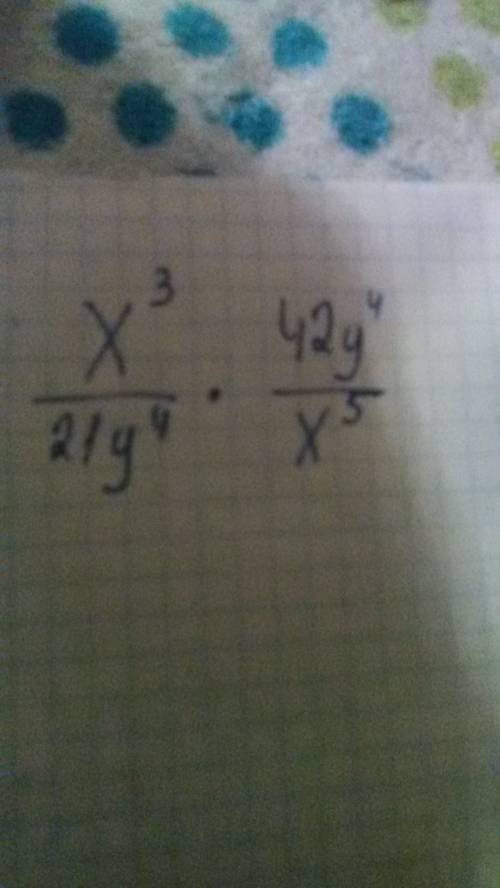 x³/21y⁴ · 42y⁴/x⁵